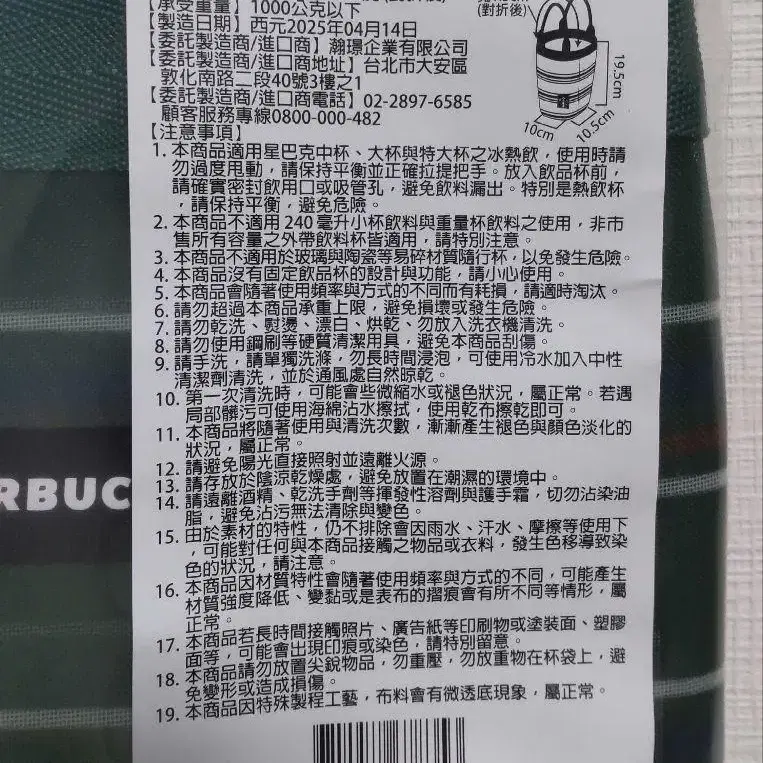 【承受重量】1000公克以下
(對折後)
【製造日期】西元2025年04月14日
【委託製造商/進口商】瀚璟企業有限公司
【委託製造商/進口商地址】台北市大安區
敦化南路二段40號3樓之1
【委託製造商/進口商電話】02-2897-6585
顧客服務專線0800-000-482
19.5cm
10cm
10.5cm
【注意事項】
1. 本商品適用星巴克中杯、大杯與特大杯之冰熱飲，使用時請
勿過度甩動，請保持平衡並正確拉提把手。放入飲品杯前，
請確實密封飲用口或吸管孔，避免飲料漏出。特別是熱飲杯
，請保持平衡，避免危險。
2. 本商品不適用 240 毫升小杯飲料與重量杯飲料之使用，非市
售所有容量之外帶飲料杯皆適用，請特別注意。
3. 本商品不適用於玻璃與陶瓷等易碎材質隨行杯，以免發生危險。
4. 本商品沒有固定飲品杯的設計與功能，請小心使用。
5. 本商品會隨著使用頻率與方式的不同而有耗損，請適時淘汰。
6. 請勿超過本商品承重上限，避免損壞或發生危險。
7. 請勿乾洗、熨燙、漂白、烘乾、勿放入洗衣機清洗。
8. 請勿使用鋼刷等硬質清潔用具，避免本商品刮傷。
9. 請手洗，請單獨洗滌，勿長時間浸泡，可使用冷水加入中性
清潔劑清洗，並於通風處自然晾乾。
10. 第一次清洗時，可能會些微縮水或褪色狀況，屬正常。若遇
局部髒污可使用海綿沾水擦拭，使用乾布擦乾即可。
11. 本商品將隨著使用與清洗次數，漸漸產生褪色與顏色淡化的
狀況，屬正常。
12. 請避免陽光直接照射並遠離火源。
13. 請存放於陰涼乾燥處，避免放置在潮濕的環境中。
14. 請遠離酒精、乾洗手劑等揮發性溶劑與護手霜，切勿沾染油
脂，避免沾污無法清除與變色。
15. 由於素材的特性，仍不排除會因雨水、汗水、摩擦等使用下
，可能對任何與本商品接觸之物品或衣料，發生色移導致染
色的狀況，請注意。
16. 本商品因材質特性會隨著使用頻率與方式的不同，可能產生
材質強度降低、變黏或是表布的摺痕會有所不同等情形，屬
正常。
17. 本商品若長時間接觸照片、廣告紙等印刷物或塗裝面、塑膠
面等，可能會出現印痕或染色，請特別留意。
18. 本商品請勿放置尖銳物品，勿重壓，勿放重物在杯袋上，避
免變形或造成損傷。
19. 本商品因特殊製程工藝，布料會有微透底現象，屬正常。
RBUC